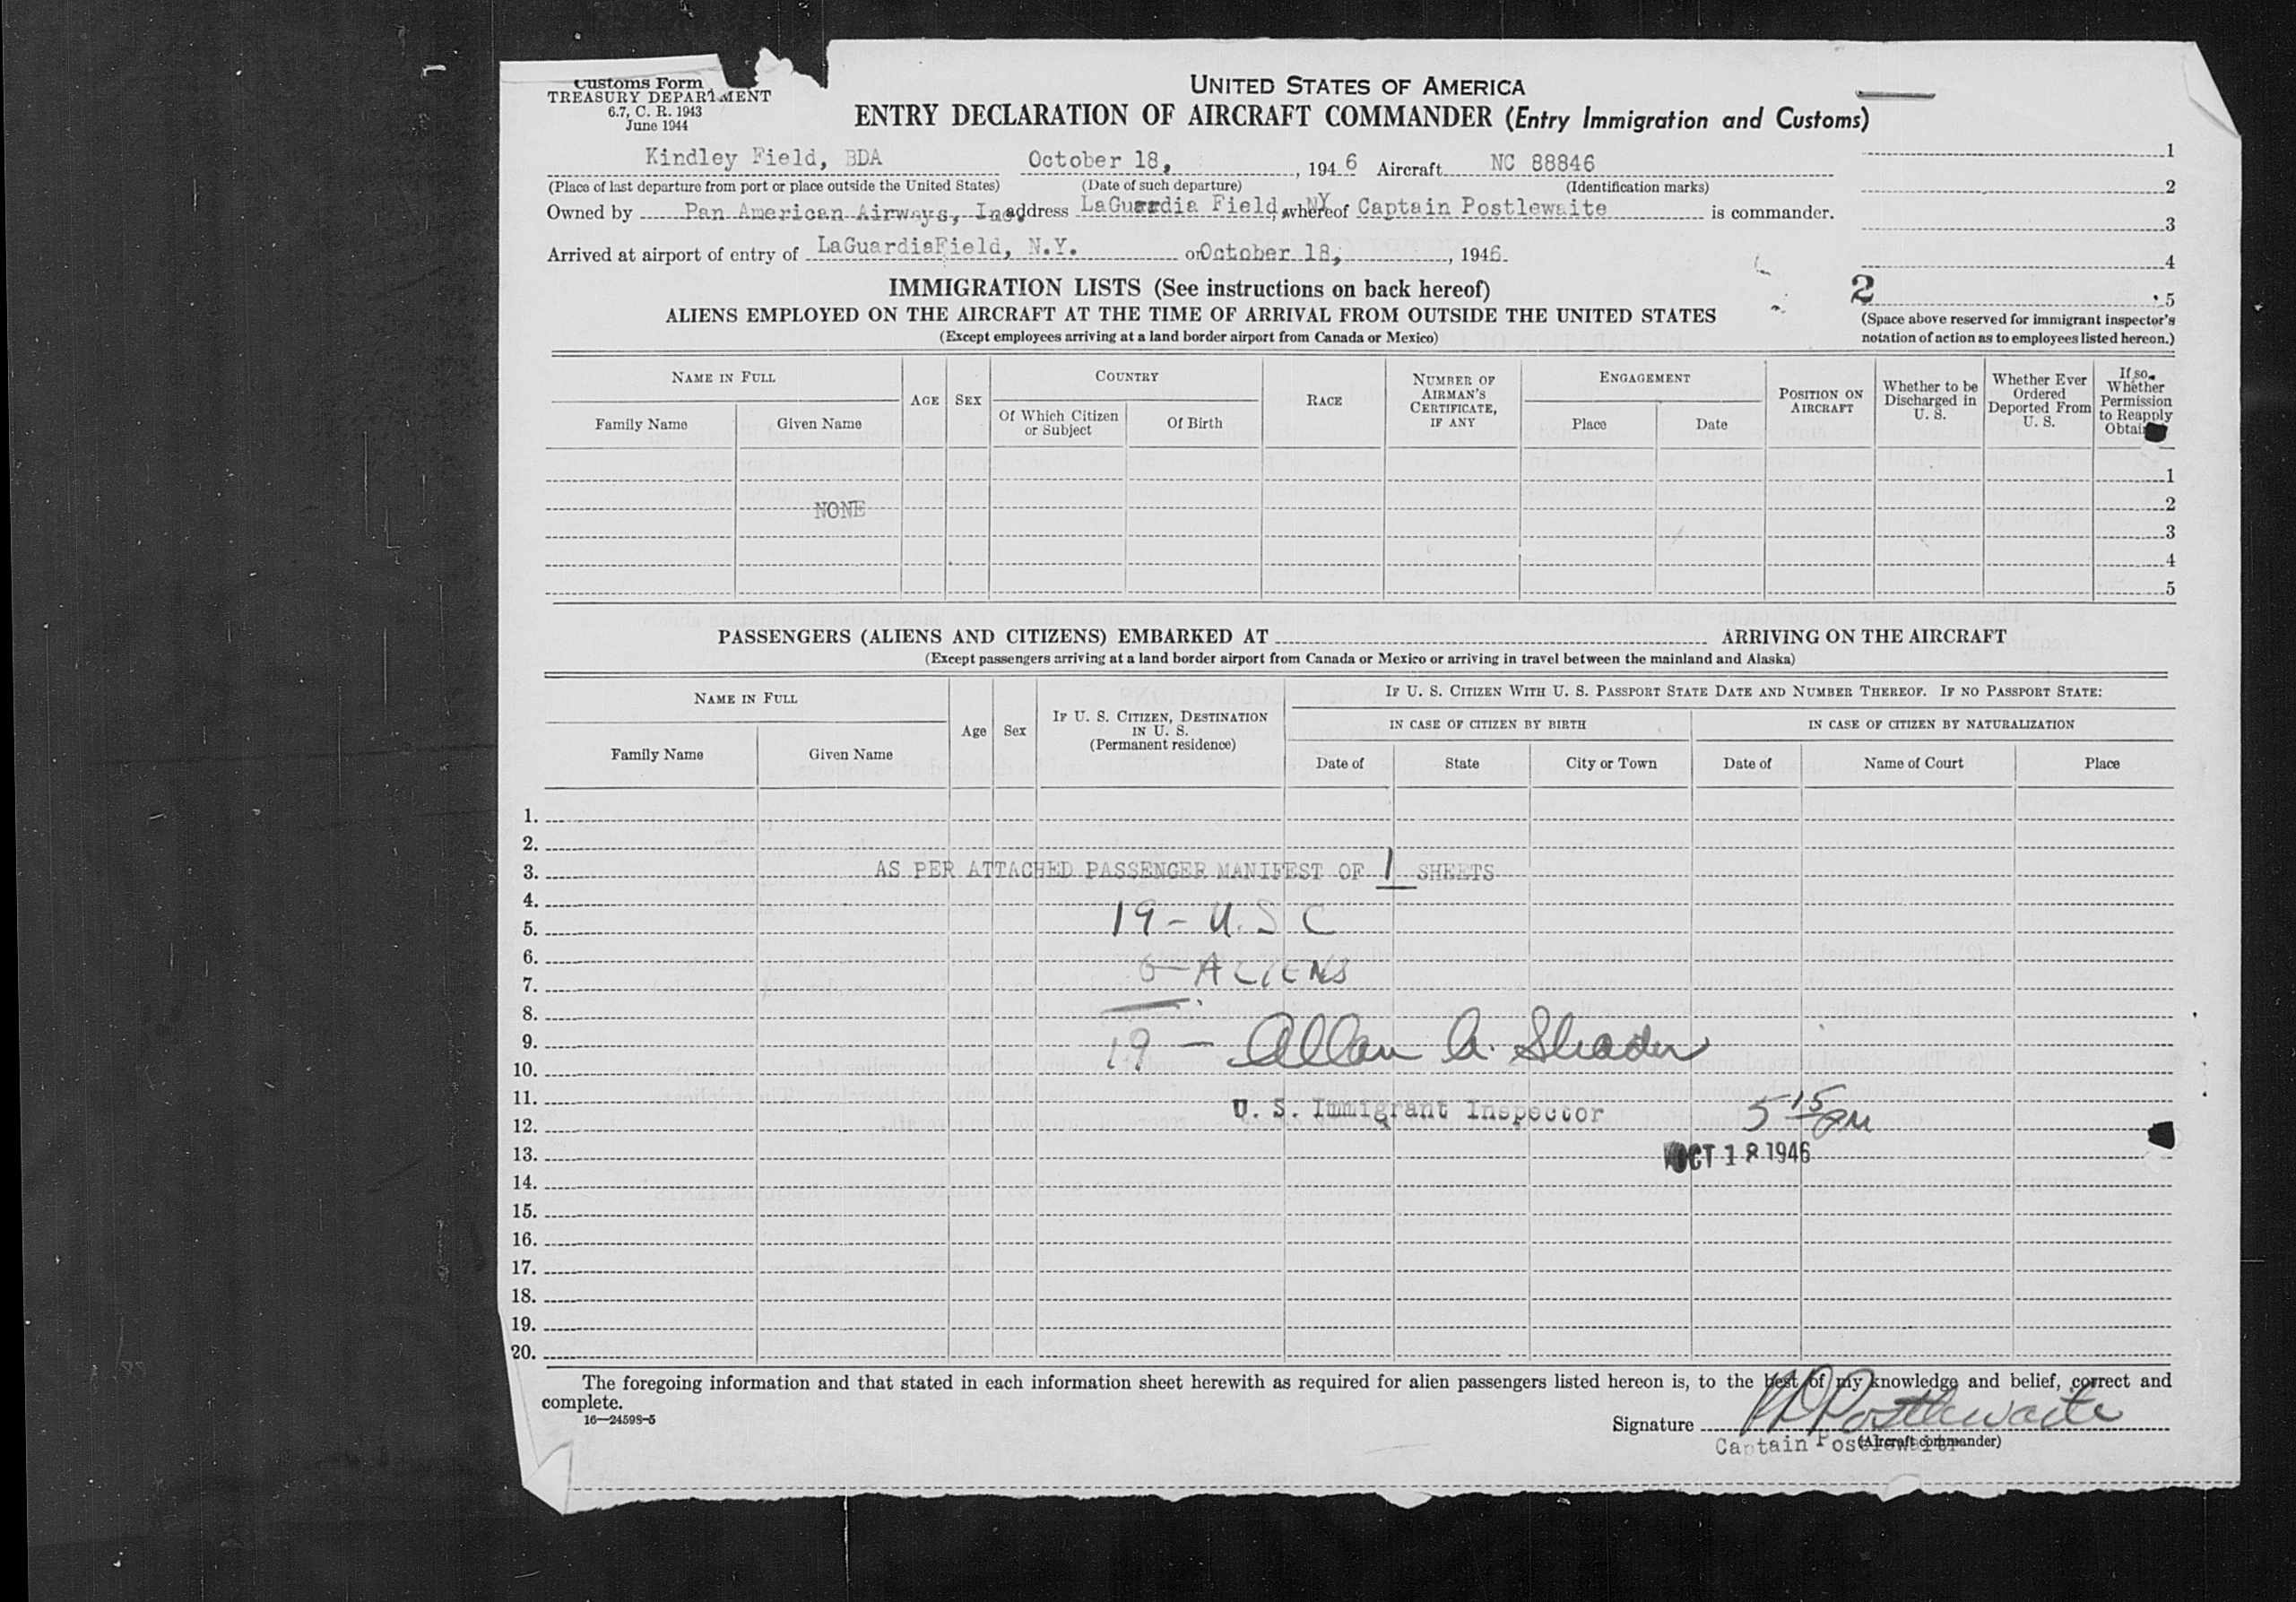 Customs Form
TREASURY DEPARTMENT
6.7, C. R. 1943
June 1944
UNITED STATES OF AMERICA
ENTRY DECLARATION OF AIRCRAFT COMMANDER (Entry Immigration and Customs)
Kindley Field, BDA October 18, , 1946 Aircraft NC 88846
(Place of last departure from port or place outside the United States) (Date of such departure) (Identification marks)
Owned by Pan American Airways, Inc. address LaGuardia Field, NY whereof Captain Postlewaite is commander.
Arrived at airport of entry of LaGuardiaField, N.Y. on October 18, , 1946.
1
2
3
4
2 5
(Space above reserved for immigrant inspector's
notation of action as to employees listed hereon.)
IMMIGRATION LISTS (See instructions on back hereof)
ALIENS EMPLOYED ON THE AIRCRAFT AT THE TIME OF ARRIVAL FROM OUTSIDE THE UNITED STATES
(Except employees arriving at a land border airport from Canada or Mexico)
NAME IN FULL
Family Name
Given Name
AGE
SEX
COUNTRY
Of Which Citizen
or Subject
Of Birth
RACE
NUMBER OF
AIRMAN'S
CERTIFICATE,
IF ANY
ENGAGEMENT
Place
Date
POSITION ON
AIRCRAFT
Whether to be
Discharged in
U. S.
Whether Ever
Ordered
Deported From
U. S.
If so,
Whether
Permission
to Reapply
1
NONE 2
3
4
5
PASSENGERS (ALIENS AND CITIZENS) EMBARKED AT ARRIVING ON THE AIRCRAFT
(Except passengers arriving at a land border airport from Canada or Mexico or arriving in travel between the mainland and Alaska)
NAME IN FULL
Family Name
Given Name
Age
Sex
IF U. S. CITIZEN, DESTINATION
IN U. S.
(Permanent residence)
IF U. S. CITIZEN WITH U. S. PASSPORT STATE DATE AND NUMBER THEREOF. IF NO PASSPORT STATE:
IN CASE OF CITIZEN BY BIRTH
IN CASE OF CITIZEN BY NATURALIZATION
Date of
State
City or Town
Date of
Name of Court
Place
1.
2.
3. AS PER ATTACHED PASSENGER MANIFEST OF 1 SHEETS
4.
5. 19 - U.S C
6.
7. 0 - ALIENS
8.
9. 19 - Allan A. Shader
10.
11. U. S. Immigrant Inspector 5 15 PM
12.
13. OCT 18 1946
14.
15.
16.
17.
18.
19.
20.
The foregoing information and that stated in each information sheet herewith as required for alien passengers listed hereon is, to the best of my knowledge and belief, correct and
complete.
16—24598-5
Signature Postlewaite
Captain Postlewaite (Aircraft commander)